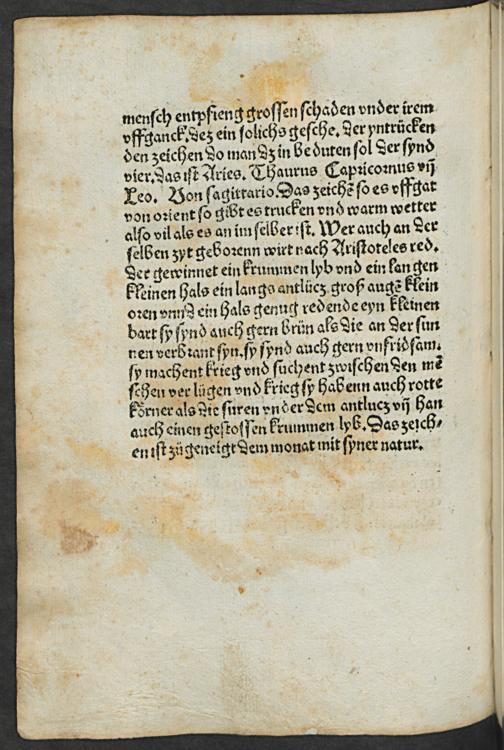 mensch entpfieng grossen schaden vnder irem
vffganck. dez ein solichs gesche. der yntrücken
den zeichen do man dz in be duten sol der synd
vier. das ist Aries. Thaurus Capricornus vn̄
Leo. Von sagittario. Das zeichē so es vffgat
von orient so gibt es trucken vnd warm wetter
also vil als es an im selber ist. Wer auch an der
selben zyt geborenn wirt nach Aristoteles red.
der gewinnet ein krummen lyb vnd ein langen
kleinen hals ein langs antlücz groß augē klein
oren vnnd ein hals genug redende eyn kleinen
bart sy synd auch gern brün als die an der sun
nen verbrant syn. sy synd auch gern vnfridsam.
sy machent krieg vnd suchent zwischen den mē
schen ver lügen vnd krieg sy habenn auch rotte
körner als die suren vnder dem antlucz vn̄ han
auch einen gestossen krummen lyb. Das zeich⸗
en ist zügeneigt dem monat mit syner natur.